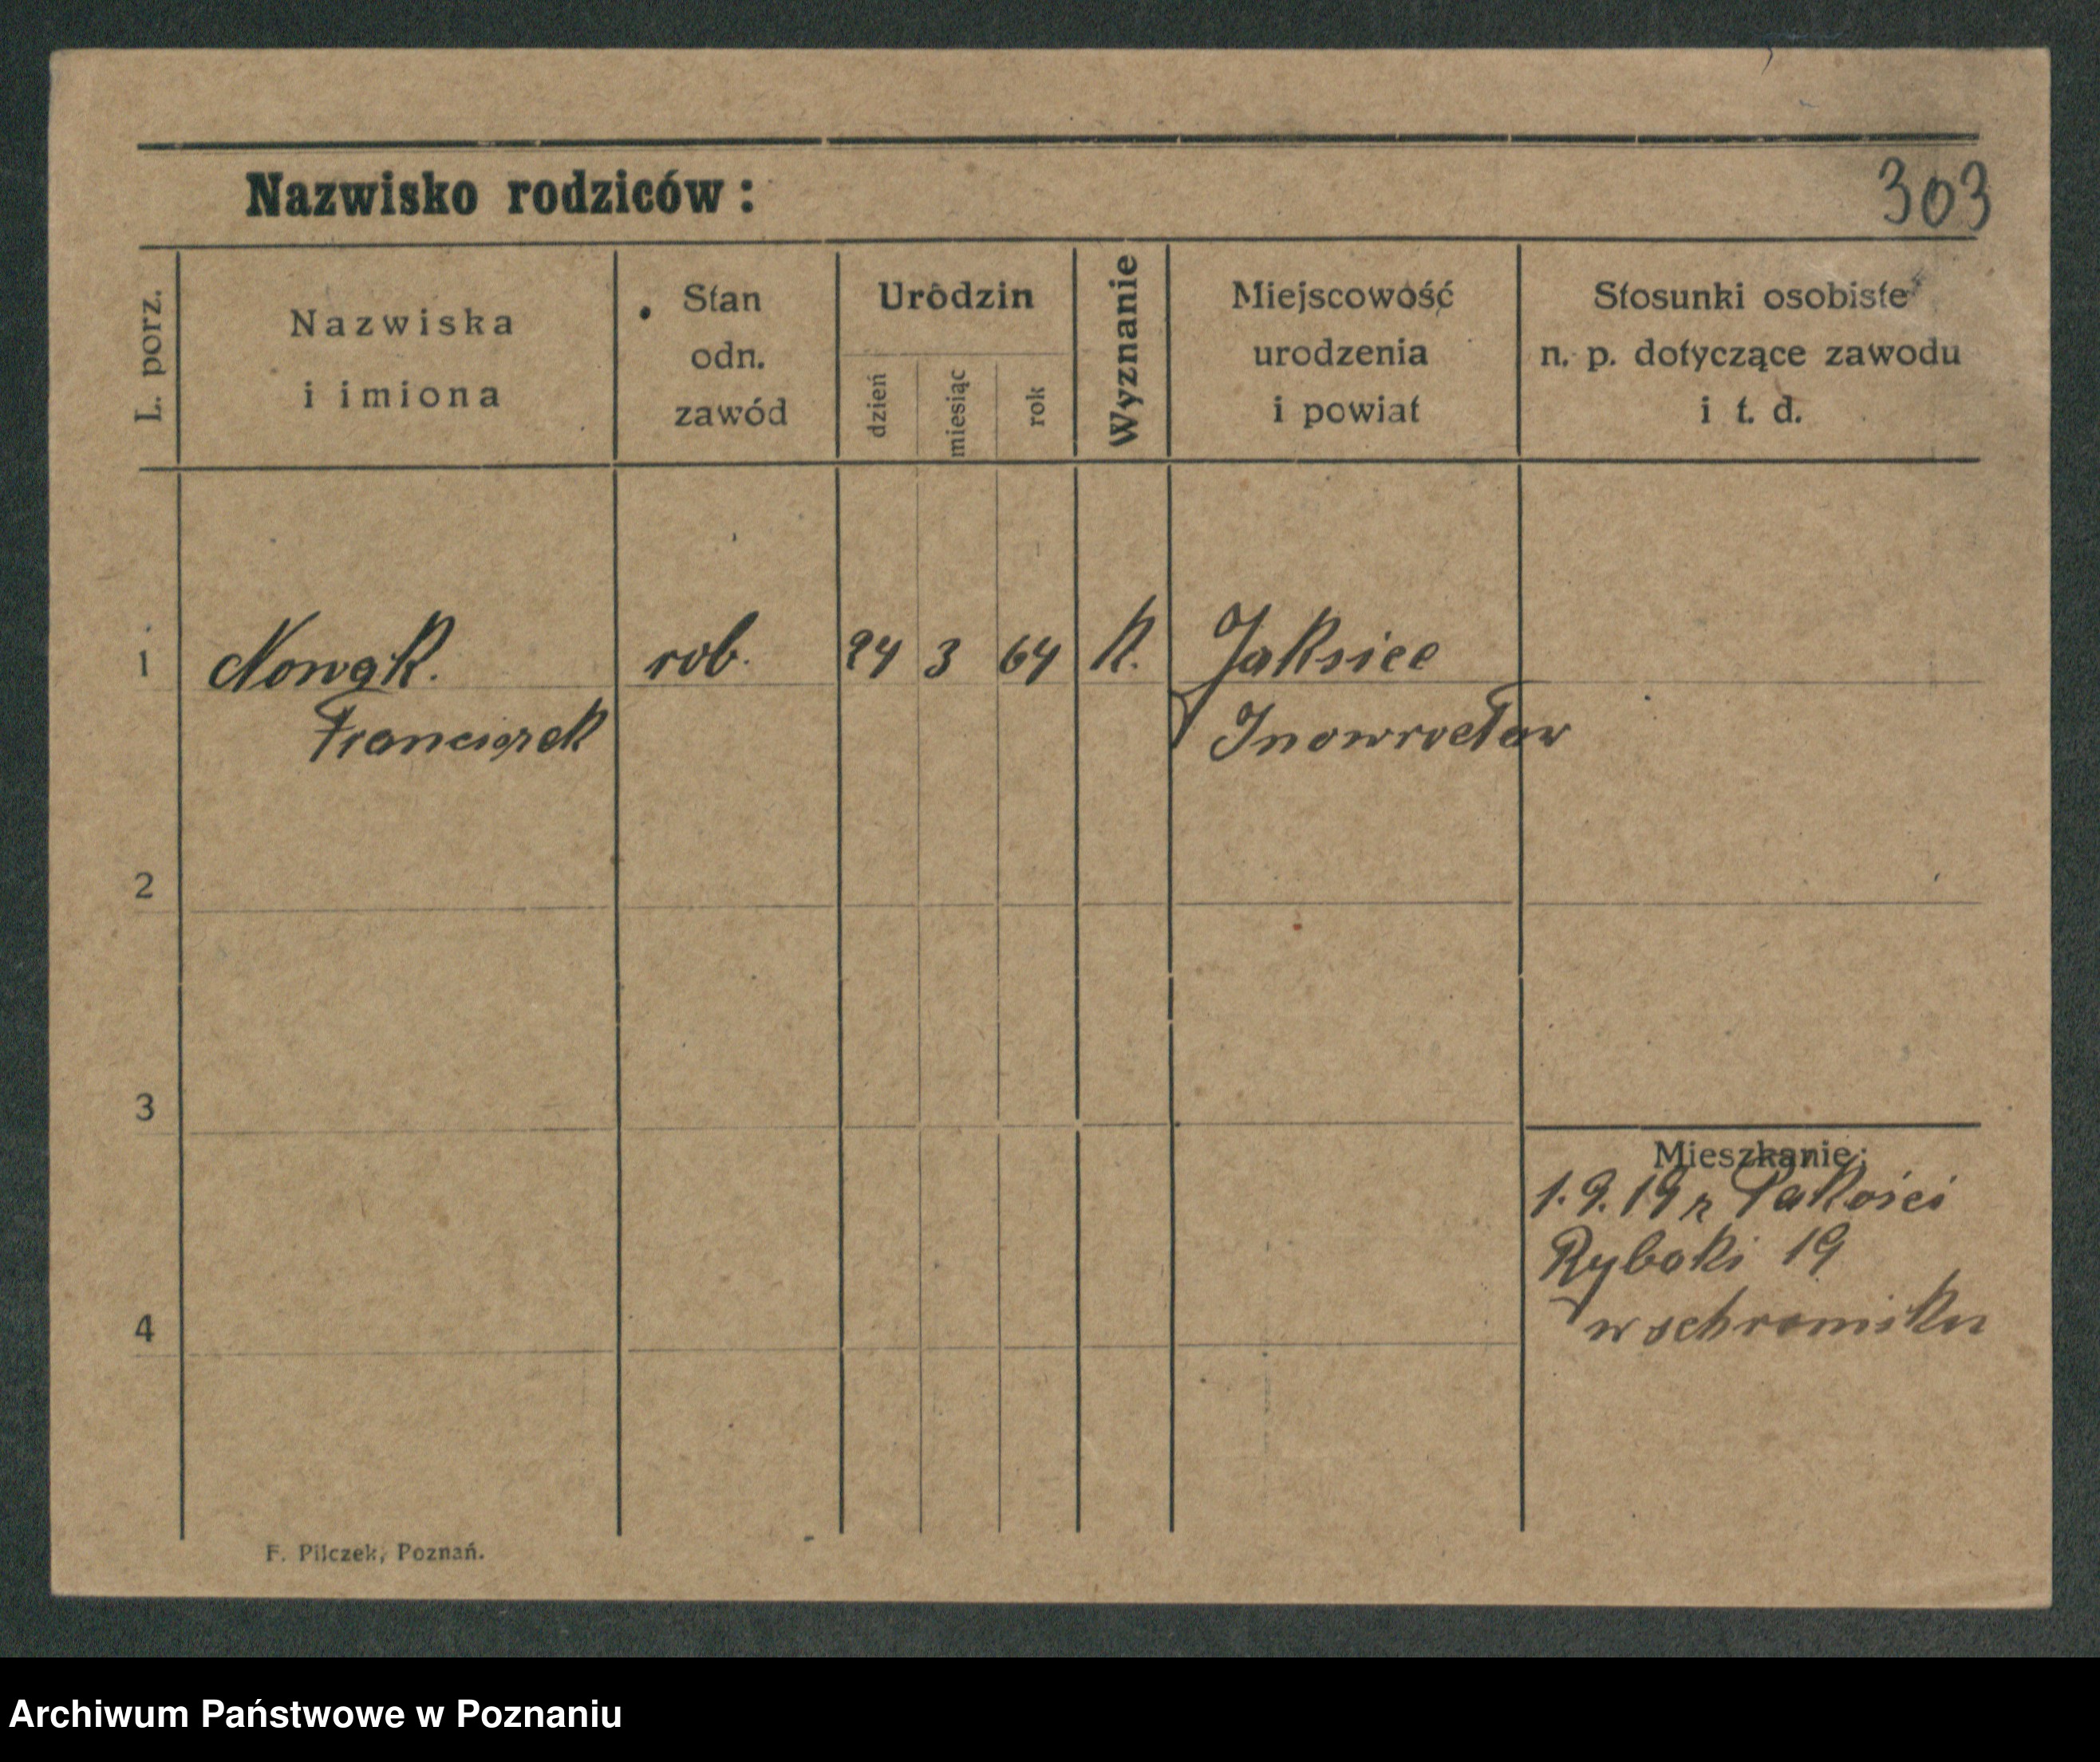 303
Nazwisko rodziców:
L. porz.
Nazwiska
i imiona
Stan
odn.
zawód
Urodzin
dzień
miesiąc
rok
Wyznanie
Miejscowość
urodzenia
i powiat
Stosunki osobiste
n. p. dotyczące zawodu
i t. d.
1 Nowak. rob. 24 3 64 K. Jaksice
Franciszek Inowrocław
2
3
Mieszkanie:
1.9.19 z Pakości
Rybaki 19
4
w schronisku
F. Pilczek, Poznań.
Archiwum Państwowe w Poznaniu